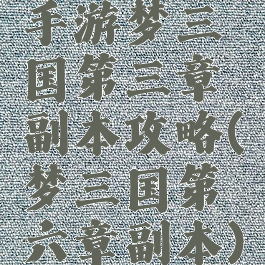 手游梦三
国第三章
副本攻略(
梦三国第
六章副本)